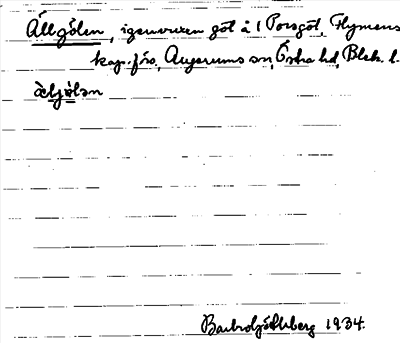 Ållgölen, igenvuxen göl å 1 Porsgöl, Flymens
kap.förs, Augerums sn, Östra hd, Blek. l.
àljö̀lən
Barbro Ljóhlberg 1934.